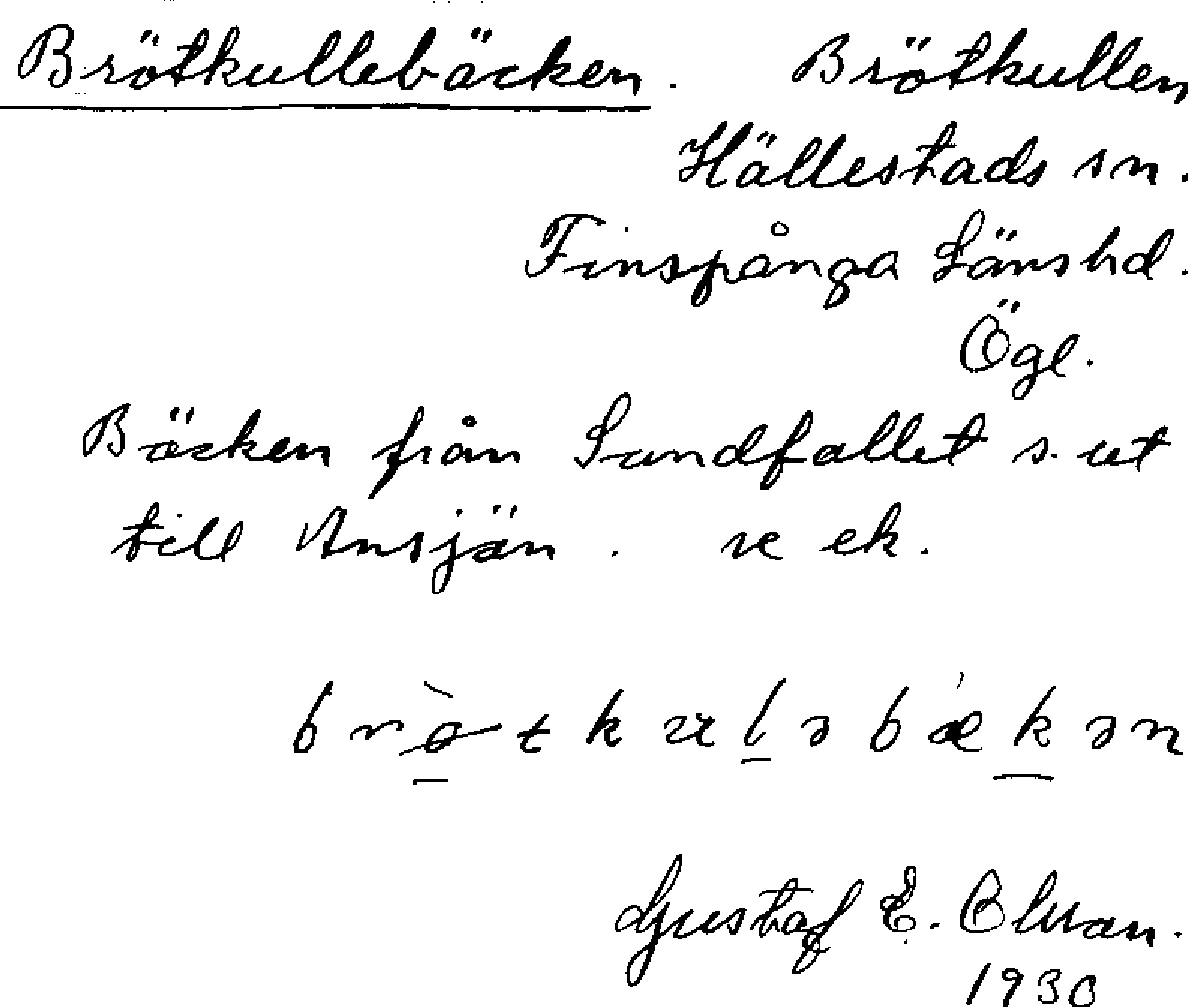 Brötkullebäcken. Brötkullen
Hällestads sn.
Finspånga Länshd.
Ögl.
Bäcken från Sundfallet s. ut
till Ansjön. se ek.
Gustaf E. Olsson.
1930